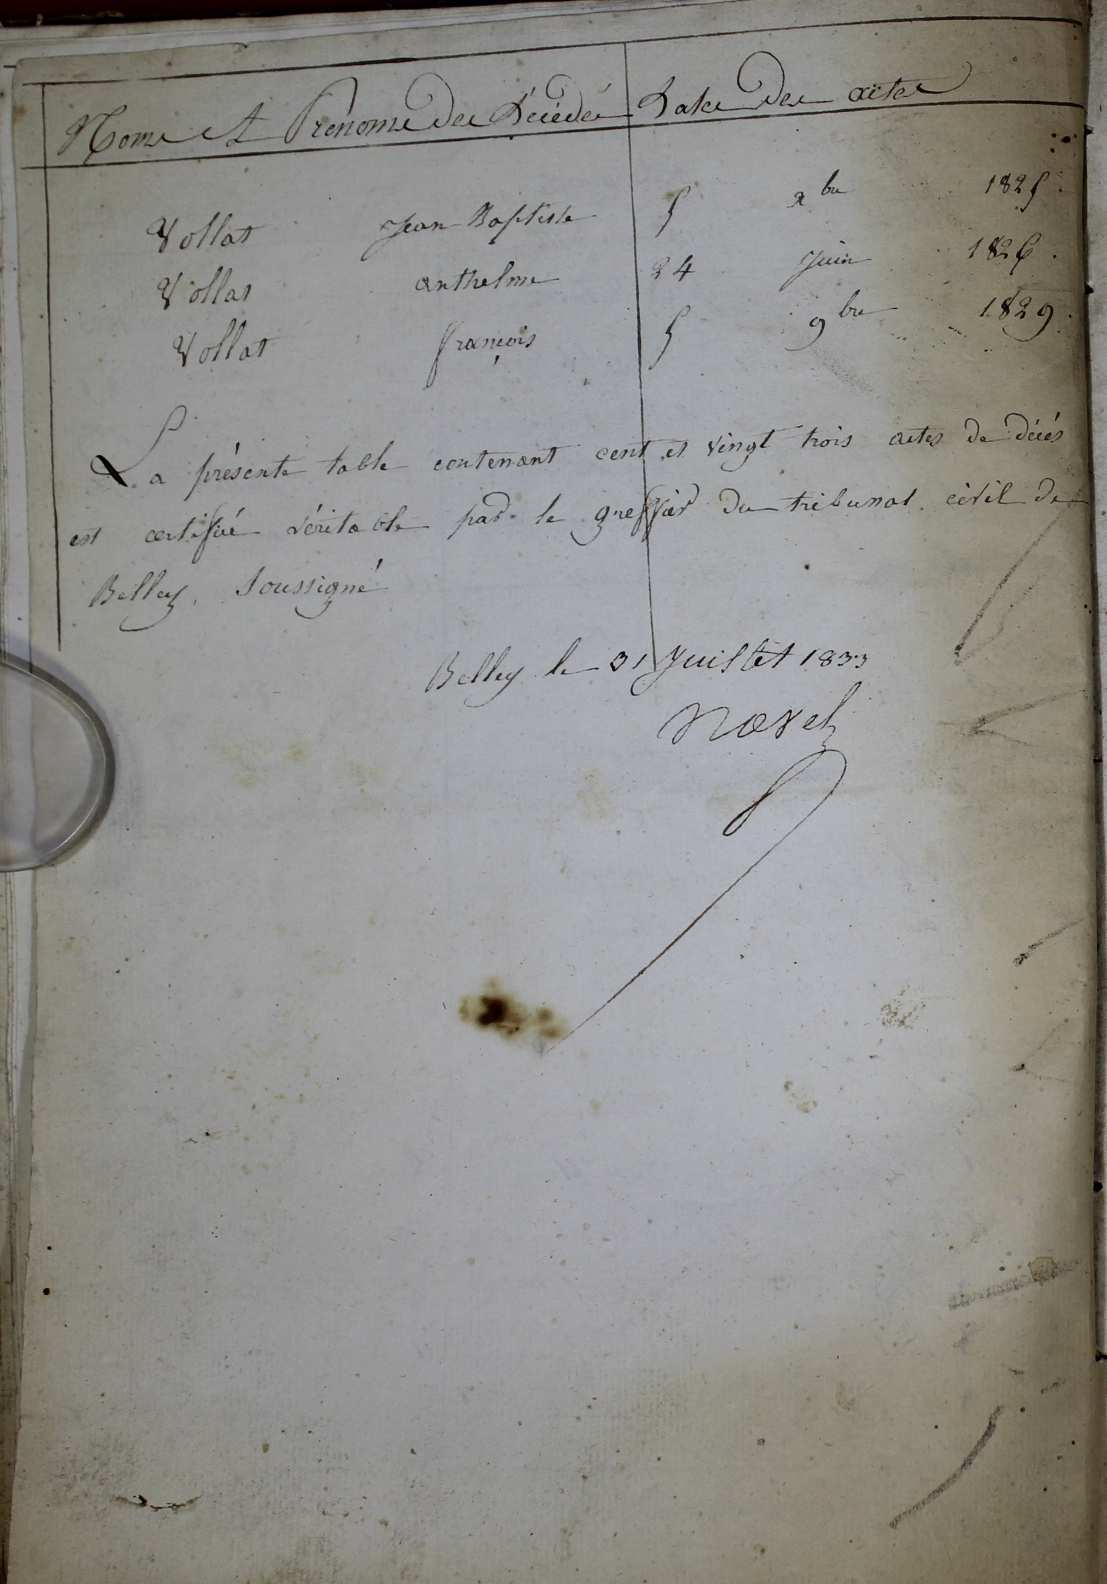 Noms et Prenoms des Décédés Dates des actes
Vollat Jean Baptiste 5 xbre 1825
Vollat anthelme 24 Juin 1826
Vollat françois 5 9bre 1829
La présente table contenant cent et vingt trois actes de décés
est certifié véritable par le greffier du tribunal civil de
Belley, Soussigné
Belley le 31 Juillet 1833